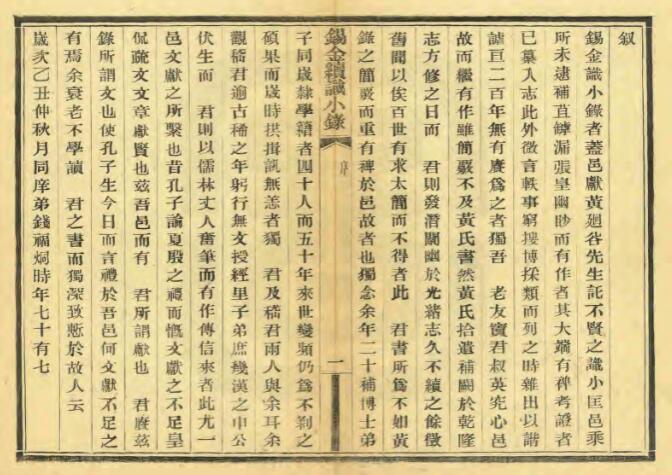 叙
錫金識小錄者葢邑獻黃廻谷先生託不賢之識小匡邑乘
所未逮補苴罅漏張皇幽眇而有作者其大端有裨考證者
已纂入志此外徵言軼事窮搜博採類而列之時雜出以諧
謔亘二百年無有賡爲之者獨吾 老友竇君叔英究心邑
故而繼有作雖簡覈不及黃氏書然黃氏拾遺補闕於乾隆
志方修之日而 君則發潛闡幽於光緖志久不續之餘徵
舊聞以俟百世有求太簡而不得者此 君書所爲不如黃
錄之簡覈而重有裨於邑故者也獨念余年二十補博士弟
錫金續識小錄
序
一
子同歲隸學籍者四十人而五十年來世變頻仍爲不剥之
碩果而歲時拱揖訊無恙者獨 君及嵇君兩人與余耳余
觀嵇君逾古稀之年躬行無文授經里子弟庶幾漢之申公
伏生而 君則以儒林丈人奮筆而有作傳信來者此尤一
邑文獻之所繫也昔孔子論夏殷之禮而慨文獻之不足皇
侃疏文文章獻賢也兹吾邑而有 君所謂獻也 君賡兹
錄所謂文也使孔子生今日而言禮於吾邑何文獻不足之
有焉余衰老不學讀 君之書而獨深致慙於故人云
歲次乙丑仲秋月同庠弟錢福炯時年七十有七